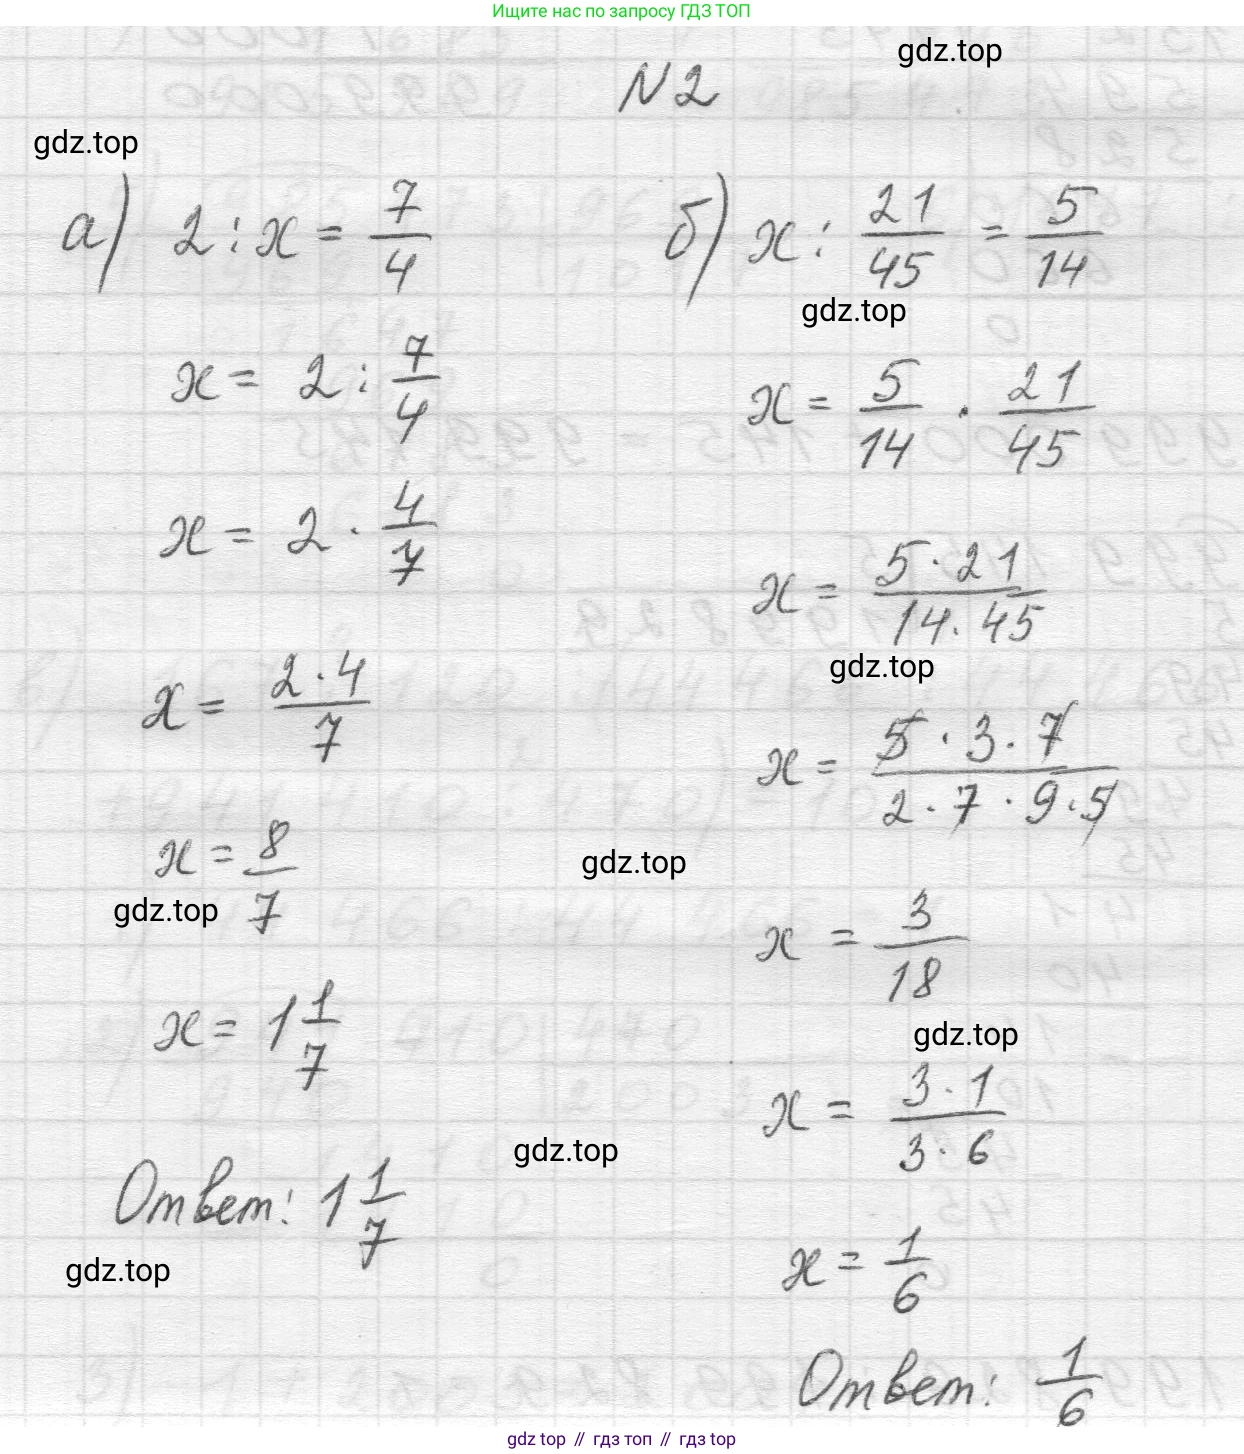 Ищите нас по запросу ГДЗ ТОП
gdz.top
N 2
gdz.top
а) 2 : x = 7/4
x = 2 : 7/4
x = 2 · 4/7
x = 2 · 4 / 7
x = 8/7
gdz.top
x = 1 1/7
Ответ: 1 1/7
gdz.top
б) x : 21/45 = 5/14
gdz.top
x = 5/14 · 21/45
x = 5 · 21 / 14 · 45
gdz.top
x = 5 · 3 · 7 / 2 · 7 · 9 · 5
gdz.top
x = 3/18
gdz.top
x = 3 · 1 / 3 · 6
gdz.top
x = 1/6
Ответ: 1/6
gdz top // гдз топ // гдз top